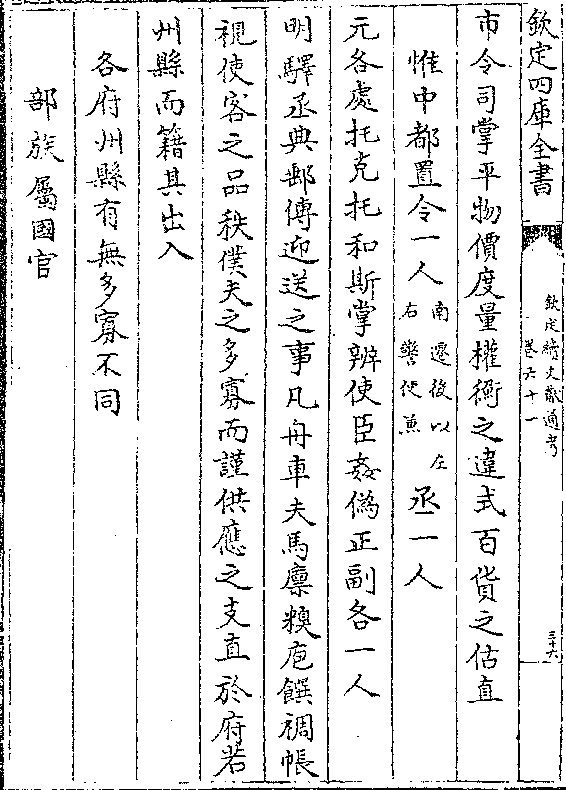 欽定四庫全書
欽定續文獻通考
卷六十一
三十六
市令司掌平物價度量權衡之違式百貨之估直
惟中都置令一人南遷後以左右警使兼丞一人
元各處托克托和斯掌辨使臣姦偽正副各一人
明驛丞典郵傳迎送之事凡舟車夫馬廩糗庖饌裯帳
視使客之品秩僕夫之多寡而謹供應之支直於府若
州縣而籍其出入
各府州縣有無多寡不同
部族屬國官